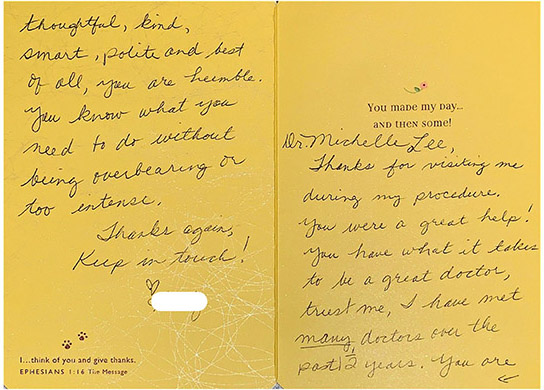 You made my day...
and then some!
Dr. Michelle Lee,
Thanks for visiting me
during my procedure.
You were a great help!
You have what it takes
to be a great doctor,
trust me, I have met
many doctors over the
past 12 years. You are
thoughtful, kind,
smart, polite and best
of all, you are humble.
You know what you
need to do without
being overbearing or
too intense.
Thanks again,
Keep in touch!
I...think of you and give thanks.
EPHESIANS 1:16 The Message